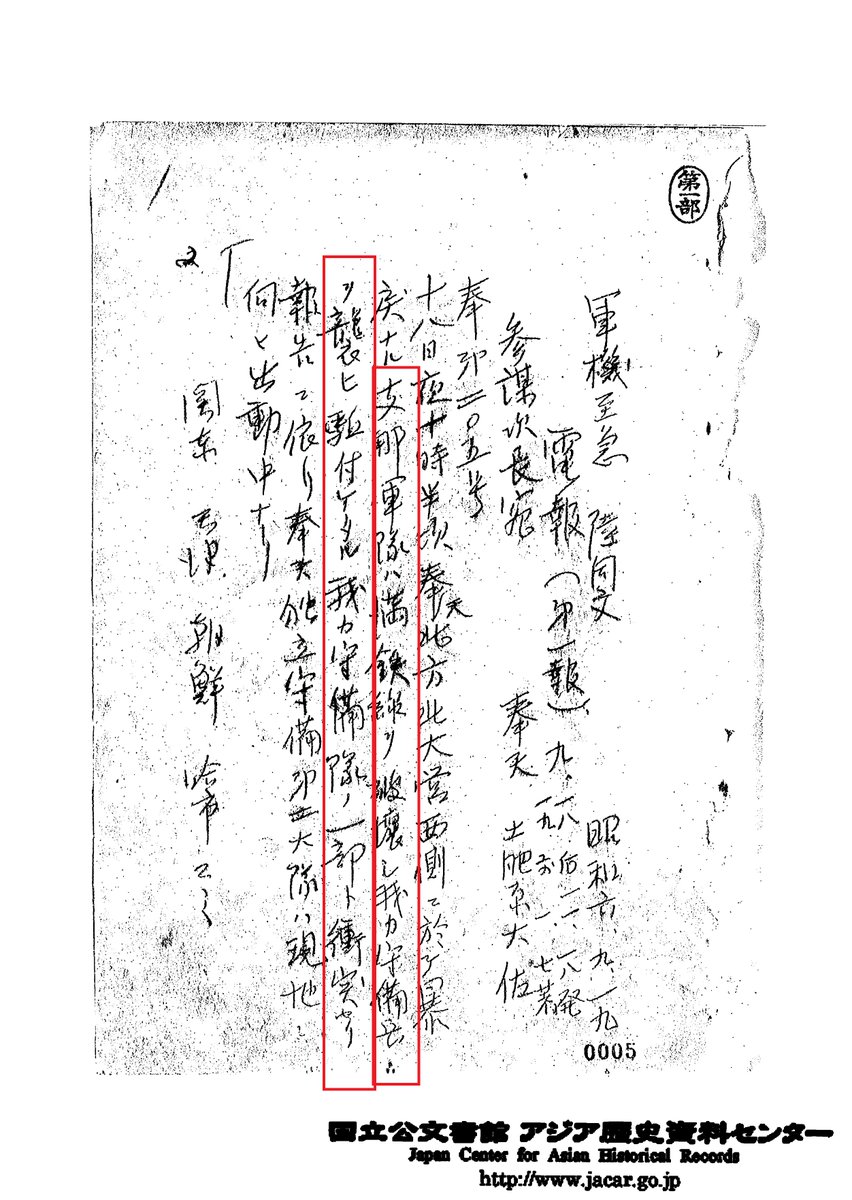 第一部
軍機至急 陸同文
昭和六、九、一九
電報(第一報)九、一八 后一一、一八発
一九 前 一、七着
参謀次長宛 奉天 土肥原大佐
奉第二〇五号
十八日夜十時半頃奉天北方北大営西側ニ於テ暴
戻ナル支那軍隊ハ満鉄線ヲ破壊シ我カ守備兵
ヲ襲ヒ駈付ケタル我カ守備隊ノ一部ト衝突セリ
報告ニ依リ奉天独立守備第二大隊ハ現地ニ
向ヒ出動中ナリ
関東 天津 朝鮮
0005
国立公文書館 アジア歴史資料センター
Japan Center for Asian Historical Records
http://www.jacar.go.jp